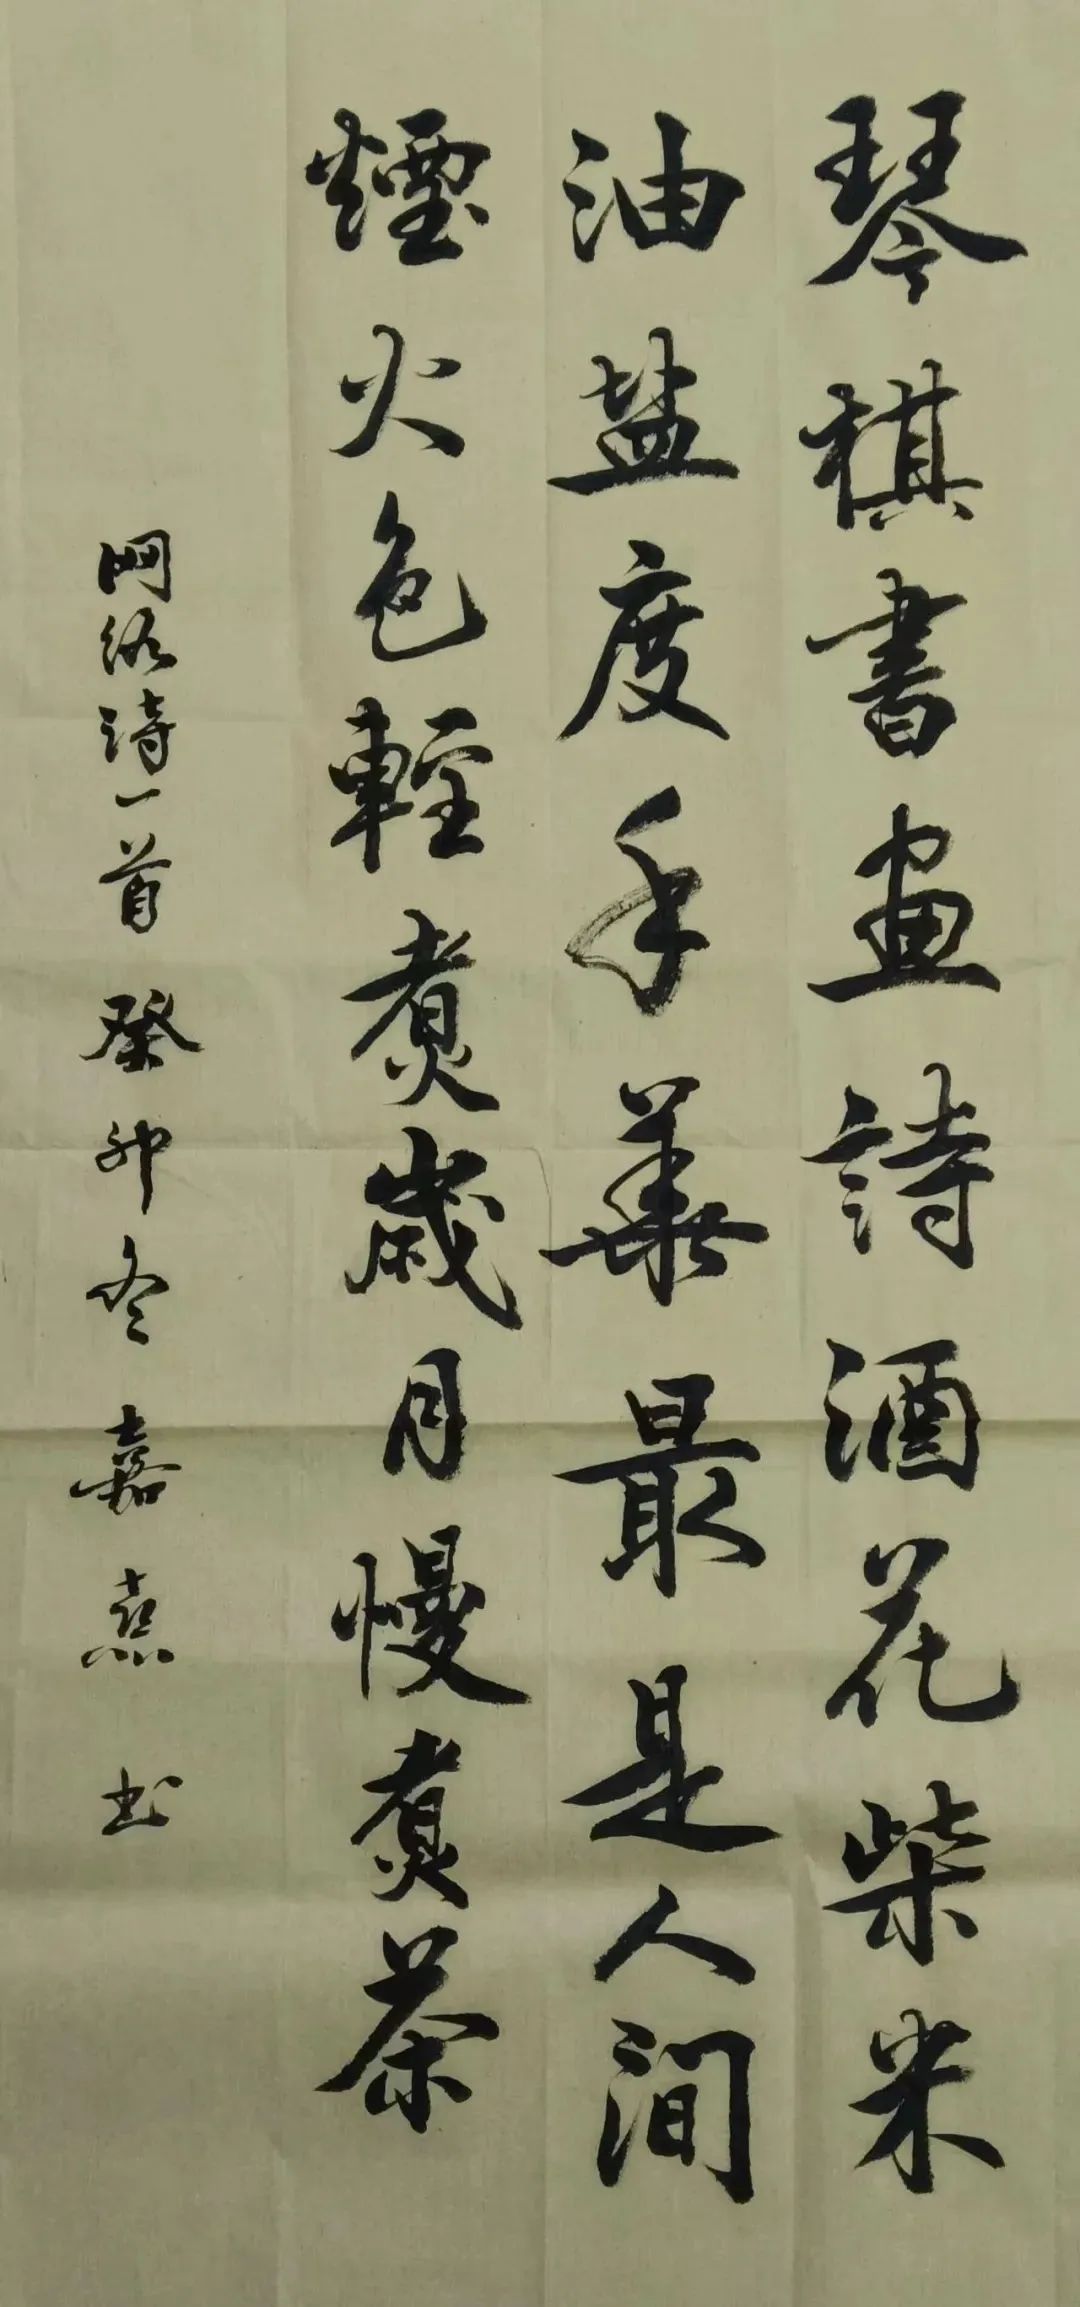 琴棋書画詩酒花柴米
油盐度年華最是人間
煙火色輕煮歲月慢煮茶
网络诗一首 癸卯冬 嘉熹书